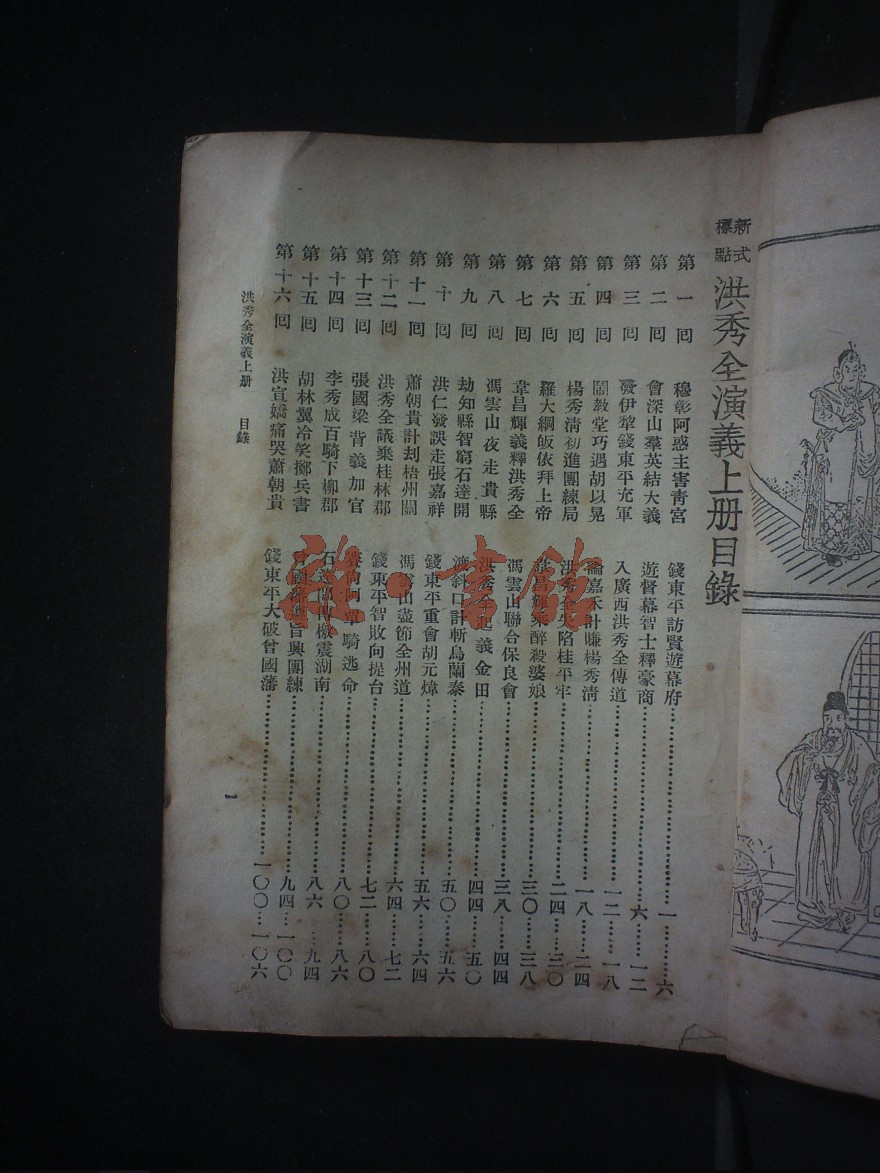 新式標點 洪秀全演義上册目錄
第一囘 穆彰阿惑主害青宮 錢東平訪賢遊幕府⋯⋯一⋯⋯六
第二囘 會深山羣英結大義 遊督幕智士釋豪商⋯⋯六⋯⋯一二
第三囘 發伊犂錢東平充軍 入廣西洪秀全傳道⋯⋯一二⋯⋯一八
第四囘 鬧敎堂巧遇胡以晃 論嘉禾計賺楊秀淸⋯⋯一八⋯⋯二四
第五囘 楊秀淸初進團練局 洪秀全失陷桂平牢⋯⋯二四⋯⋯三〇
第六囘 羅大綱皈依拜上帝 韋昌輝乘醉殺婆娘⋯⋯三〇⋯⋯三八
第七囘 韋昌輝義釋洪秀全 馮雲山聯合保良會⋯⋯三八⋯⋯四四
第八囘 馮雲山夜走貴縣 洪秀全起義金田⋯⋯四四⋯⋯五〇
第九囘 劫知縣智窮石達開 渡斜口計斬烏蘭泰⋯⋯五〇⋯⋯五六
第十囘 洪仁發誤走張嘉祥 錢東平重會胡元煒⋯⋯五六⋯⋯六四
第十一囘 蕭朝貴計刦梧州關 馮雲山盡節全州道⋯⋯六四⋯⋯七二
第十二囘 洪秀全議棄桂林郡 錢東平智敗向提台⋯⋯七二⋯⋯八〇
第十三囘 張國梁背義加官 單騎逃命⋯⋯八〇⋯⋯八六
第十四囘 李秀成百騎下柳郡 石達開傳檄震湖南⋯⋯八六⋯⋯九四
第十五囘 胡林翼冷笑擲兵書 曾國藩進旨興團練⋯⋯九四⋯⋯一〇〇
第十六囘 洪宣嬌痛哭蕭朝貴 錢東平大破曾國藩⋯⋯一〇〇⋯⋯一〇六
洪秀全演義上册 目錄 一